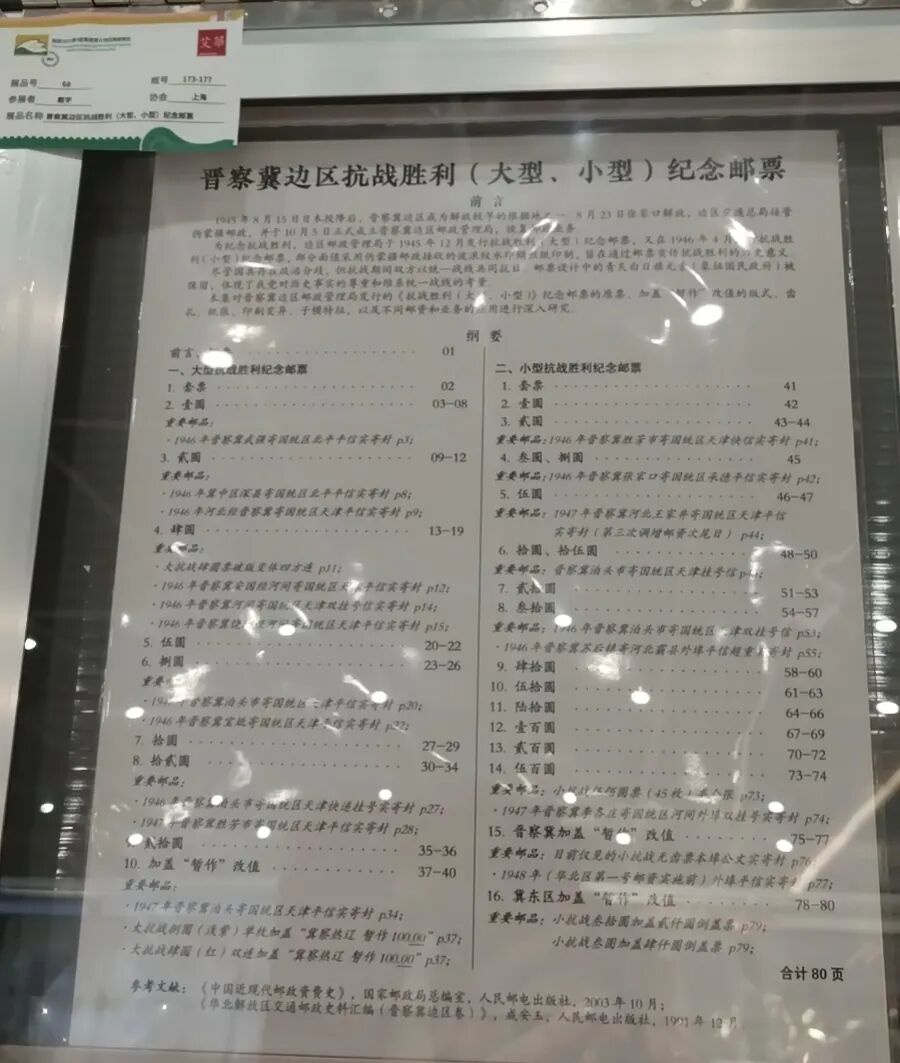 艾華
展品号 68 框号 173-177
参展者 协会 上海
展品名称 晋察冀边区抗战胜利（大型、小型）纪念邮票
晋察冀边区抗战胜利（大型、小型）纪念邮票
前言
1945年8月15日日本投降后，晋察冀边区成为解放较早的根据地之一 8月23日张家口解放，边区交通总局接管
伪蒙疆邮政，并于10月5日正式成立晋察冀边区邮政管理局，
为纪念抗战胜利，边区邮政管理局于1945年12月发行抗战胜利（大型）纪念邮票，又在1946年4月 抗战胜
利（小型）纪念邮票，部分面值采用伪蒙疆邮政接收的波浪纹水印模造纸印制，旨在通过邮票宣传抗战胜利的历史意义。
尽管国共存在政治分歧，但抗战期间双方以统一战线共同抗日。邮票设计中的青天白日徽元素（象征国民政府）被
保留，体现了我党对历史事实的尊重和维系统一战线的考量。
本集对晋察冀边区邮政管理局发行的《抗战胜利（大 、小型）》纪念邮票的原票、加盖“暂作”改值的版式、齿
孔、纸张、印刷变异、子模特征，以及不同邮资和业务的 用进行深入研究。
纲要
前言、 01
一、大型抗战胜利纪念邮票
1. 套票 02
2. 壹圆 03-08
重要邮品：
·1946年晋察冀武强寄国统区北平平信实寄封 p3；
3. 贰圆 09-12
重要邮品：
·1946年冀中区深县寄国统区北平平信实寄封 p8；
·1946年河北经晋察冀寄国统区天津平信实寄封 p9；
4. 肆圆 13-19
重要邮品：
·大抗战肆圆票破版变体四方连 p11；
·1946年晋察冀安国经河间寄国统区天 平信实寄封 p12；
·1946年晋察冀河间寄国统区天津双挂号信实寄封 p14；
·1946年晋察冀饶 河间寄国统区天津平信实寄封 p15；
5. 伍圆 20-22
6. 捌圆 23-26
重要
·1946年晋察冀泊头市寄国统区天津平信实寄封 p20；
·1946年晋察冀宣纸寄国统区天津平信实寄封 p22；
7. 拾圆 27-29
8. 拾贰圆 30-34
重要邮品：
·1946年晋察冀泊头市寄国统区天津快递挂号实寄封 p27；
·1947年晋察冀胜芳市寄国统区天津平信实寄封 p28；
贰拾圆 35-36
10. 加盖“暂作”改值 37-40
重要邮品：
·1947年晋察冀泊头寄国统区天津平信实寄封 p34；
·大抗战捌圆（浅紫）单枚加盖“冀察热辽 暂作100.00”p37；
·大抗战肆圆（红）双连加盖“冀察热辽 暂作100.00”p37；
二、小型抗战胜利纪念邮票
1. 套票 41
2. 壹圆 42
3. 贰圆 43-44
重要邮品：1946年晋察冀胜芳市寄国统区天津快信实寄封 p41；
4. 叁圆、捌圆 45
重要邮品：1946年晋察冀张家口寄国统区承德平信实寄封 p42；
5. 伍圆 46-47
重要邮品：1947年晋察冀河北王家井寄国统区天津平信
实寄封（第三次调增邮资次尾日）p44；
6. 拾圆、拾伍圆 48-50
重要邮品：晋察冀泊头市寄国统区天津挂号信
7. 贰拾圆 51-53
8. 叁拾圆 54-57
重要邮品：1946年晋察冀泊头市寄国统区天津双挂号信 p53；
·1946年晋察冀苏后镇寄河北霸县外埠平信超重实寄封 p55；
9. 肆拾圆 58-60
10. 伍拾圆 61-63
11. 陆拾圆 64-66
12. 壹百圆 67-69
13. 贰百圆 70-72
14. 伍百圆 73-74
重要邮品：小抗战伍佰圆票（45枚） 全张 p73；
·1947年晋察冀李各庄寄国统区河间外埠双挂号实寄封 p74；
15. 晋察冀加盖“暂作”改值 75-77
重要邮品：目前仅见的小抗战无齿票本埠公文实寄封 p76；
·1948年（华北区第一号邮资实施前）外埠平信实寄封 p77；
16. 冀东区加盖“暂作”改值 78-80
重要邮品：小抗战叁拾圆加盖贰仟圆倒盖票 p79；
小抗战叁圆加盖肆仟圆倒盖票 p79；
合计80页
参考文献：《中国近现代邮政资费史》，国家邮政局总编室，人民邮电出版社，2003年10月；
《华北解放区交通邮政史料汇编（晋察冀边区卷）》，成安玉，人民邮电出版社，1991年12月